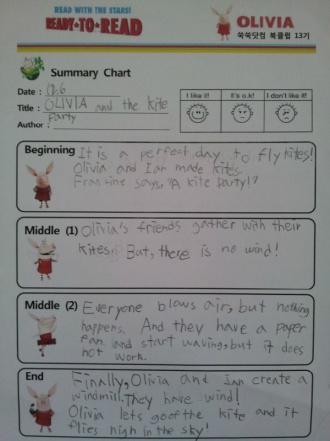 READ WITH THE STARS!
READY-TO-READ
OLIVIA
쑥쑥닷컴 북클럽 13기
Summary Chart
Date : 12.6
Title : OLIVIA and the kite
Party
Author :
I like it!
It's o.k!
I don't like it!
Beginning
It is a perfect day to fly kites!
Olivia and Ian made kites.
Francine says, "A kite Party!?
Middle (1)
Olivia's friends gather with their
kites. But, there is no wind!
Middle (2)
Everyone blows air, but nothing
happens. And they have a paper
fan and start waving, but it does
not work.
End
Finally, Olivia and Ian create a
windmill. They have wind!
Olivia lets go of the kite and it
flies high in the sky!